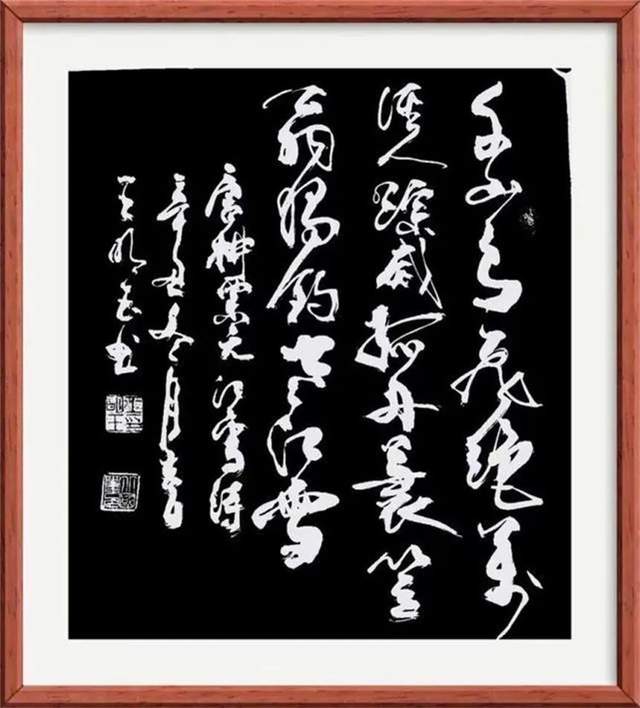 千山鸟飞绝万
径人踪灭孤舟蓑笠
翁独钓寒江雪
唐柳宗元江雪诗
辛丑冬月
书